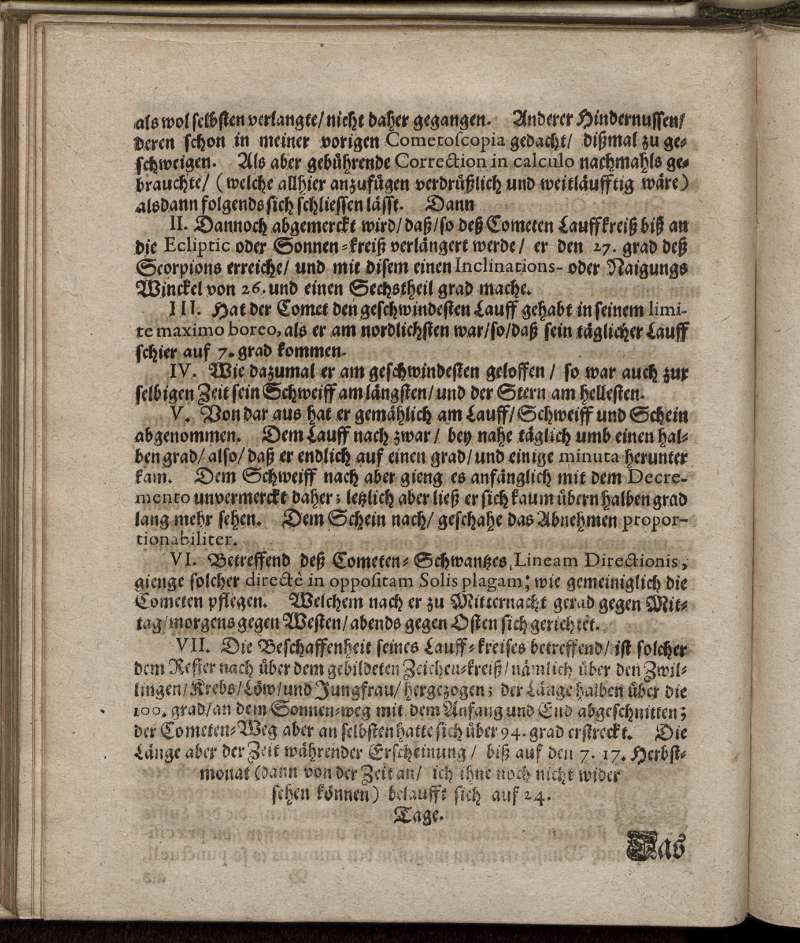 als wol selbsten verlangte/ nicht daher gegangen. Anderer Hindernussen/
deren schon in meiner vorigen Cometoscopia gedacht/ dißmal zu ge-
schweigen. Als aber gebührende Correction in calculo nachmahls ge-
brauchte/ (welche allhier anzufügen verdrüßlich und weitläufftig wäre)
alsdann folgends sich schliessen lässt. Dann
II. Dannoch abgemerckt wird/ daß/ so deß Cometen Lauffkreiß biß an
die Ecliptic oder Sonnen-kreiß verlängert werde/ er den 27. grad deß
Scorpions erreiche/ und mit disem einen Inclinations- oder Naigungs
Winckel von 26. und einen Sechstheil grad mache.
III. Hat der Comet den geschwindesten Lauff gehabt in seinem limi-
te maximo boreo, als er am nordlichsten war/ so/ daß sein täglicher Lauff
schier auf 7. grad kommen.
IV. Wie dazumal er am geschwindesten geloffen/ so war auch zur
selbigen Zeit sein Schweiff am längsten/ und der Stern am hellesten.
V. Von dar aus hat er gemählich am Lauff/ Schweiff und Schein
abgenommen. Dem Lauff nach zwar/ bey nahe täglich umb einen hal-
ben grad/ also/ daß er endlich auf einen grad/ und einige minuta herunter
kam. Dem Schweiff nach aber gieng es anfänglich mit dem Decre-
mento unvermerckt daher; letzlich aber ließ er sich kaum übern halben grad
lang mehr sehen. Dem Schein nach/ geschahe das Abnehmen propor-
tionabiliter.
VI. Betreffend deß Cometen-Schwantzes Lineam Directionis,
gienge solcher directè in oppositam Solis plagam; wie gemeiniglich die
Cometen pflegen. Welchem nach er zu Mitternacht gerad gegen Mit-
tag/ morgens gegen Westen/ abends gegen Osten sich gerichtet.
VII. Die Beschaffenheit seines Lauff-kreises betreffend/ ist solcher
dem Rester nach über dem gebildeten Zeichen-kreiß/ nämlich über den Zwil-
lingen/ Krebs/ Löw/ und Jungfrau/ hergezogen; der Länge halben über die
100. grad/ an dem Sonnen-weg mit dem Anfang und End abgeschnitten;
der Cometen-Weg aber an selbsten hatte sich über 94. grad erstreckt. Die
Länge aber der Zeit währender Erscheinung/ biß auf den 7. 17. Herbst-
monat (dann von der Zeit an/ ich ihne noch nicht wider
sehen können) belaufft sich auf 24.
Tage.
Das